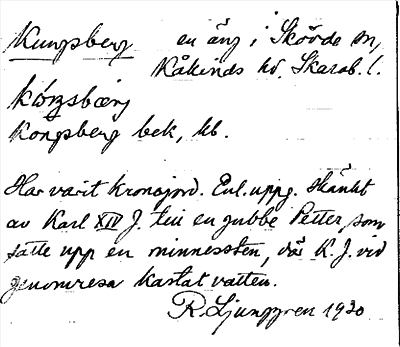 Kungsberg en äng i Skövde sn,
Kåkinds hd. Skarab. l.
kóŋsbærj
Kongsberg bek, kb.
Har varit kronojord. Enl. uppg. skänkt
av Karl XIV J. till en gubbe Petter, som
satte upp en minnessten, där K. J. vid
genomresa kastat vatten.
R. Ljunggren 1930